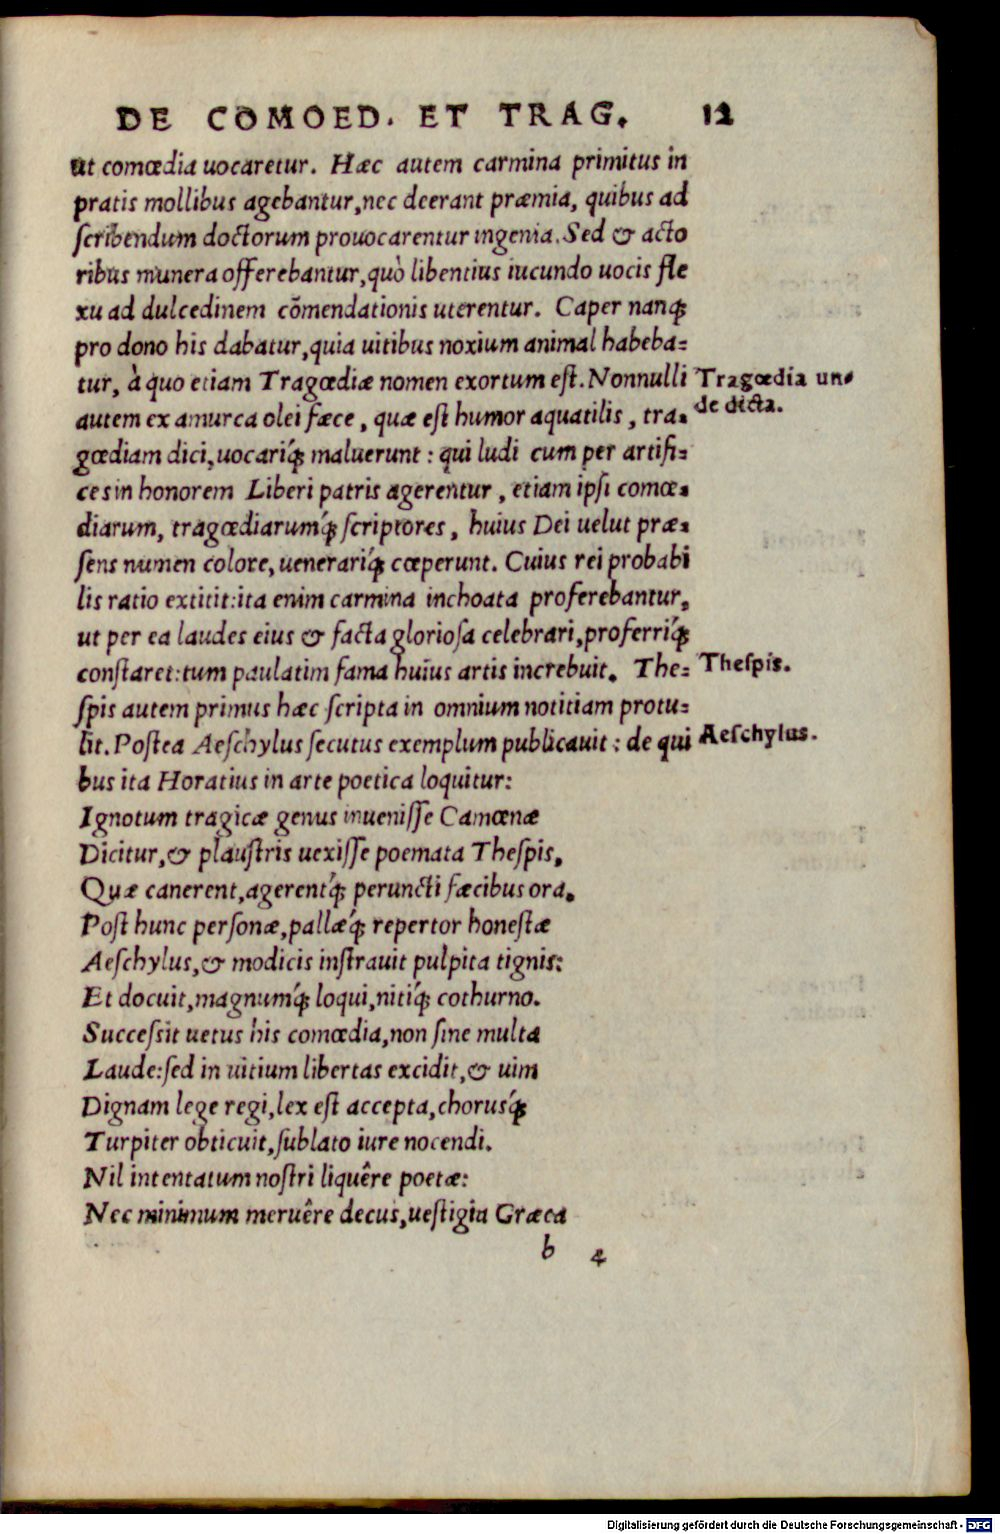 DE COMOED. ET TRAG. 12
ut comœdia uocaretur. Hæc autem carmina primitus in
pratis mollibus agebantur,nec deerant præmia, quibus ad
ſcribendum doctorum prouocarentur ingenia.Sed & acto
ribus munera offerebantur,quò libentius iucundo uocis fle
xu ad dulcedinem cõmendationis uterentur. Caper nanq́;
pro dono his dabatur,quia uitibus noxium animal habeba=
tur, à quo etiam Tragœdiæ nomen exortum eſt.Nonnulli
Tragœdia un=
de dicta.
autem ex amurca olei fæce, quæ eſt humor aquatilis, tra=
gœdiam dici,uocariq́; maluerunt: qui ludi cum per artifi=
ces in honorem Liberi patris agerentur, etiam ipſi comœ=
diarum, tragœdiarumq́; ſcriptores, huius Dei uelut præ=
ſens numen colore,uenerariq́; cœperunt. Cuius rei probabi
lis ratio extitit:ita enim carmina inchoata proferebantur,
ut per ea laudes eius & facta glorioſa celebrari,proferriq́;
conſtaret:tum paulatim fama huius artis increbuit. The=
Theſpis.
ſpis autem primus hæc ſcripta in omnium notitiam protu=
lit.Poſtea Aeſchylus ſecutus exemplum publicauit: de qui
Aeſchylus.
bus ita Horatius in arte poetica loquitur:
Ignotum tragicæ genus inueniſſe Camœnæ
Dicitur,& plauſtris uexiſſe poemata Theſpis,
Quæ canerent,agerentq́; peruncti fæcibus ora.
Poſt hunc perſonæ,pallæq́; repertor honeſtæ
Aeſchylus,& modicis inſtrauit pulpita tignis:
Et docuit,magnumq́; loqui,nitiq́; cothurno.
Succeſſit uetus his comœdia,non ſine multa
Laude:ſed in uitium libertas excidit,& uim
Dignam lege regi,lex eſt accepta,chorusq́;
Turpiter obticuit,ſublato iure nocendi.
Nil intentatum noſtri liquêre poetæ:
Nec minimum meruêre decus,ueſtigia Græca
b 4
Digitalisierung gefördert durch die Deutsche Forschungsgemeinschaft - DFG